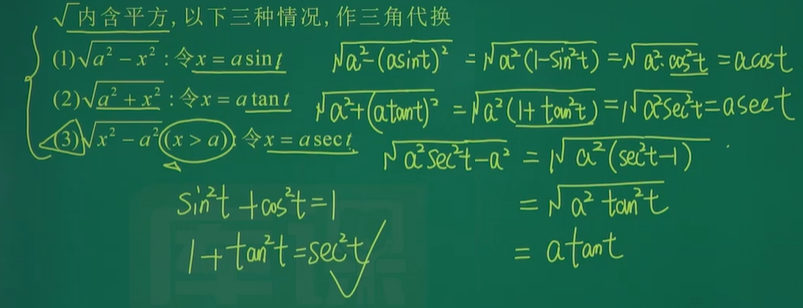 √内含平方,以下三种情况,作三角代换
(1)√(a² − x²) : 令x = a sin t √(a²−(asint)²) = √(a²(1−sin²t)) = √(a²·cos²t) = acost
(2)√(a² + x²) : 令x = a tan t √(a²+(atant)²) = √(a²(1+tan²t)) = √(a²sec²t) = asect
(3)√(x² − a²)(x > a) : 令x = a sec t √(a²sec²t−a²) = √(a²(sec²t−1))
sin²t + cos²t = 1 = √(a² tan²t)
1 + tan²t = sec²t = atant